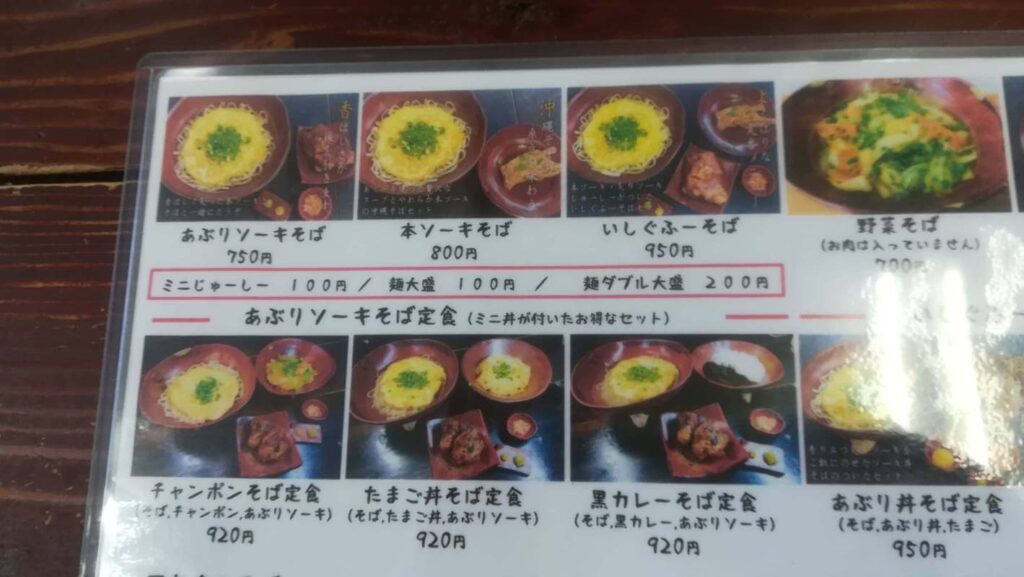 あぶりソーキそば
750円
本ソーキそば
800円
いしぐふーそば
950円
野菜そば
(お肉は入っていません)
700円
ミニじゅーしー 100円 / 麺大盛 100円 / 麺ダブル大盛 200円
あぶりソーキそば定食 (ミニ丼が付いたお得なセット)
チャンポンそば定食
(そば,チャンポン,あぶりソーキ)
920円
たまご丼そば定食
(そば,たまご丼,あぶりソーキ)
920円
黒カレーそば定食
(そば,黒カレー,あぶりソーキ)
920円
あぶり丼そば定食
(そば,あぶり丼,たまご)
950円